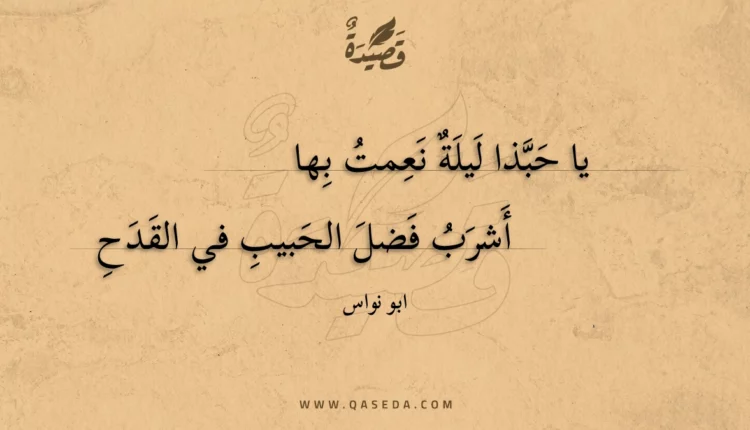 قَصِيْدَةٌ
يا حَبَّذا لَيلَةٌ نَعِمتُ بِها
أَشرَبُ فَضلَ الحَبيبِ في القَدَحِ
ابو نواس
WWW.QASEDA.COM